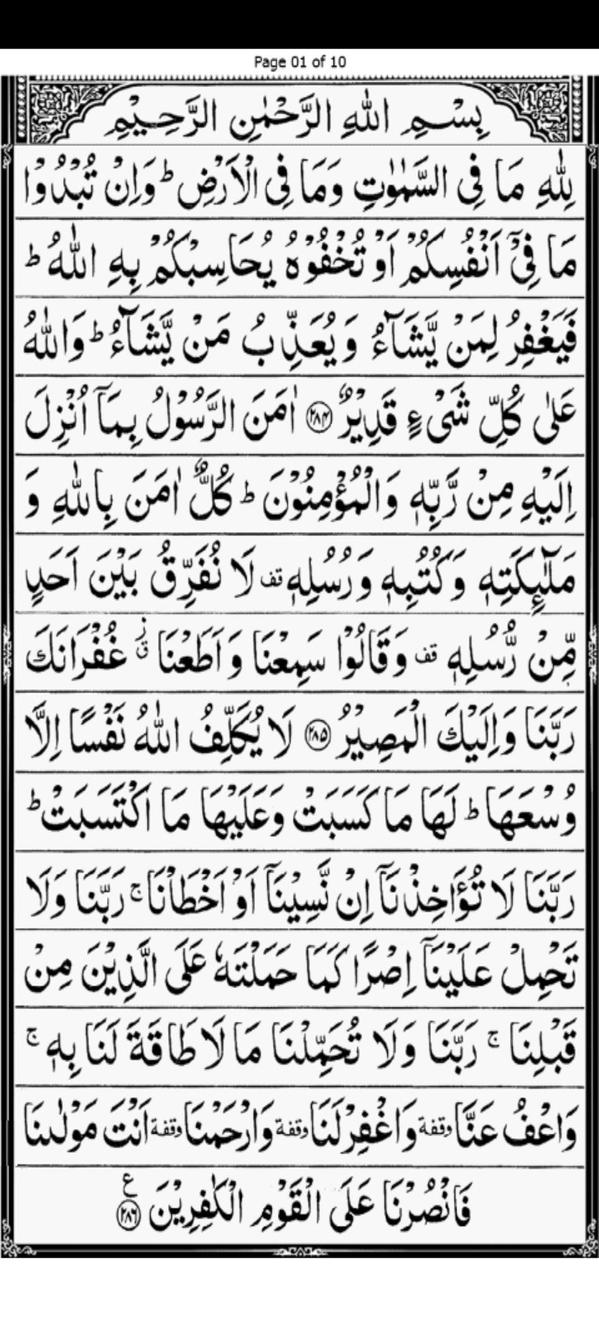 Page 01 of 10
بِسْمِ اللهِ الرَّحْمٰنِ الرَّحِيْمِ
لِلّٰهِ مَا فِى السَّمٰوٰتِ وَمَا فِى الْاَرْضِ ؕ وَاِنْ تُبْدُوْا
مَا فِىْۤ اَنْفُسِكُمْ اَوْ تُخْفُوْهُ يُحَاسِبْكُمْ بِهِ اللّٰهُ ؕ
فَيَغْفِرُ لِمَنْ يَّشَآءُ وَيُعَذِّبُ مَنْ يَّشَآءُ ؕ وَاللّٰهُ
عَلٰى كُلِّ شَىْءٍ قَدِيْرٌ ﴿۲۸۴﴾ اٰمَنَ الرَّسُوْلُ بِمَاۤ اُنْزِلَ
اِلَيْهِ مِنْ رَّبِّهٖ وَالْمُؤْمِنُوْنَ ؕ كُلٌّ اٰمَنَ بِاللّٰهِ وَ
مَلٰٓئِكَتِهٖ وَكُتُبِهٖ وَرُسُلِهٖ قف لَا نُفَرِّقُ بَيْنَ اَحَدٍ
مِّنْ رُّسُلِهٖ قف وَقَالُوْا سَمِعْنَا وَاَطَعْنَا ق غُفْرَانَكَ
رَبَّنَا وَاِلَيْكَ الْمَصِيْرُ ﴿۲۸۵﴾ لَا يُكَلِّفُ اللّٰهُ نَفْسًا اِلَّا
وُسْعَهَا ؕ لَهَا مَا كَسَبَتْ وَعَلَيْهَا مَا اكْتَسَبَتْ ؕ
رَبَّنَا لَا تُؤَاخِذْنَاۤ اِنْ نَّسِيْنَاۤ اَوْ اَخْطَاْنَا ۚ رَبَّنَا وَلَا
تَحْمِلْ عَلَيْنَاۤ اِصْرًا كَمَا حَمَلْتَهٗ عَلَى الَّذِيْنَ مِنْ
قَبْلِنَا ۚ رَبَّنَا وَلَا تُحَمِّلْنَا مَا لَا طَاقَةَ لَنَا بِهٖ ۚ
وَاعْفُ عَنَّا وقفة وَاغْفِرْ لَنَا وقفة وَارْحَمْنَا وقفة اَنْتَ مَوْلٰىنَا
فَانْصُرْنَا عَلَى الْقَوْمِ الْكٰفِرِيْنَ ﴿۲۸۶﴾ ع